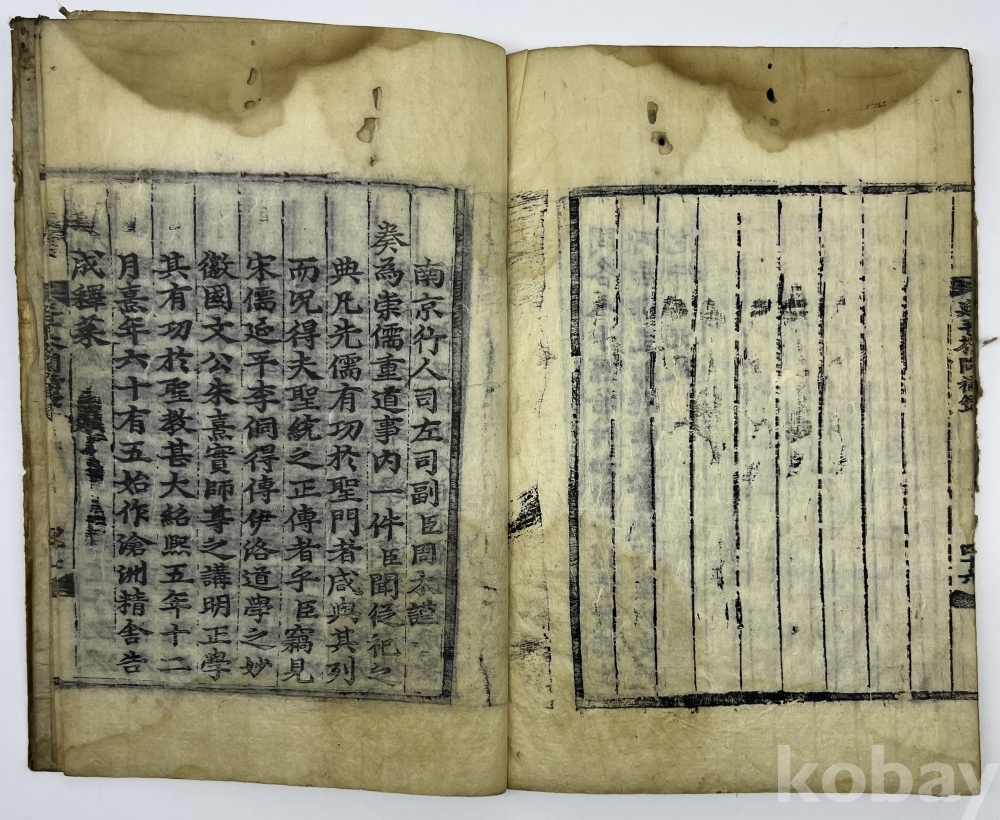 南京行人司左司副臣周木謹
奏為崇儒重道事内一件臣聞從祀之
典凡先儒有功於聖門者咸與其列
而况得夫聖統之正傳者乎臣竊見
宋儒延平李侗得傳伊洛道學之妙
徽國文公朱熹實師尊之講明正學
其有功於聖教甚大紹熙五年十二
月熹年六十有五始作滄洲精舎告
成釋菜
kobay